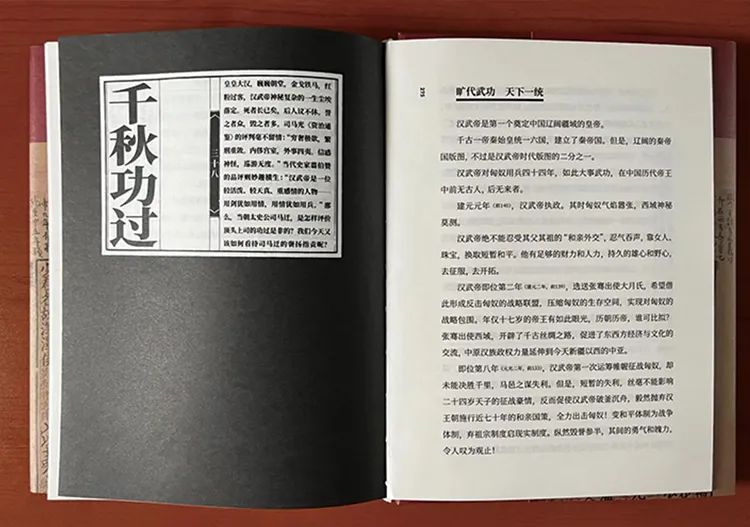 千秋功过
三十八
皇皇大汉，巍巍朝堂，金戈铁马，红
粉过客，汉武帝神秘复杂的一生尘埃
落定。死者长已矣，后人议不休，誉
之者众，毁之者多。司马光《资治通
鉴》的评判毫不留情：“穷奢极欲，繁
刑重敛，内侈宫室，外事四夷，信惑
神怪，巡游无度。”当代史家翦伯赞
的品评则妙趣横生：“汉武帝是一位
较活泼、较天真、重感情的人物——
用剑犹如用情，用情犹如用兵。”那
么，当朝太史公司马迁，是怎样评价
顶头上司的功过是非的？我们今天又
该如何看待司马迁的褒扬指责呢？
275
旷代武功 天下一统
汉武帝是第一个奠定中国辽阔疆域的皇帝。
千古一帝秦始皇统一六国，建立了秦帝国。但是，辽阔的秦帝
国版图，不过是汉武帝时代版图的二分之一。
汉武帝对匈奴用兵四十四年，如此大事武功，在中国历代帝王
中前无古人，后无来者。
建元元年（前140），汉武帝执政。其时匈奴气焰嚣张，西域神秘
莫测。
汉武帝绝不能忍受其父其祖的“和亲外交”，忍气吞声，靠女人、
珠宝，换取短暂和平。他有足够的财力和人力，持久的雄心和野心，
去征服，去开拓。
汉武帝即位第二年（建元二年，前139），选送张骞出使大月氏，希望借
此形成反击匈奴的战略联盟，压缩匈奴的生存空间，实现对匈奴的
战略包围。年仅十七岁的帝王有如此眼光，历朝历帝，谁可比拟？
张骞出使西域，开辟了千古丝绸之路，促进了东西方经济与文化的
交流，中原汉族政权力量延伸到今天新疆以西的中亚。
即位第八年（元光二年，前133），汉武帝第一次运筹帷幄征战匈奴，却
未能决胜千里，马邑之谋失利。但是，短暂的失利，丝毫不能影响
二十四岁天子的征战豪情，反而促使汉武帝破釜沉舟，毅然抛弃汉
王朝施行近七十年的和亲国策，全力出击匈奴！变和平体制为战争
体制，弃祖宗制度启现实制度。纵然毁誉参半，其间的勇气和魄力，
令人叹为观止！